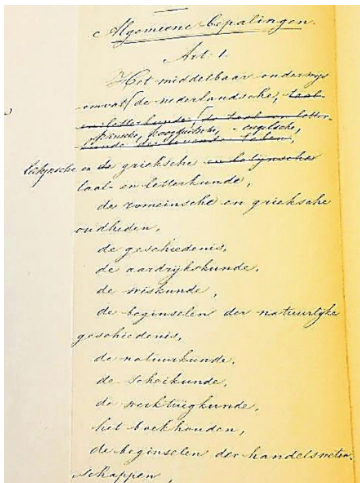 Algemeene bepalingen.
Art. 1.
Het middelbaar onderwijs
omvat de nederlandsche, taal
en letterkunde, de taal en letter
fransche, hoogduitsche, engelsche,
kunde der levende talen,
latijnsche en de grieksche en latijnsche
taal- en letterkunde,
de romeinsche en grieksche
oudheden,
de geschiedenis,
de aardrijkskunde,
de wiskunde,
de beginselen der natuurlijke
geschiedenis,
de natuurkunde,
de scheikunde,
de werktuigkunde,
het boekhouden,
de beginselen der handelsweten-
schappen,